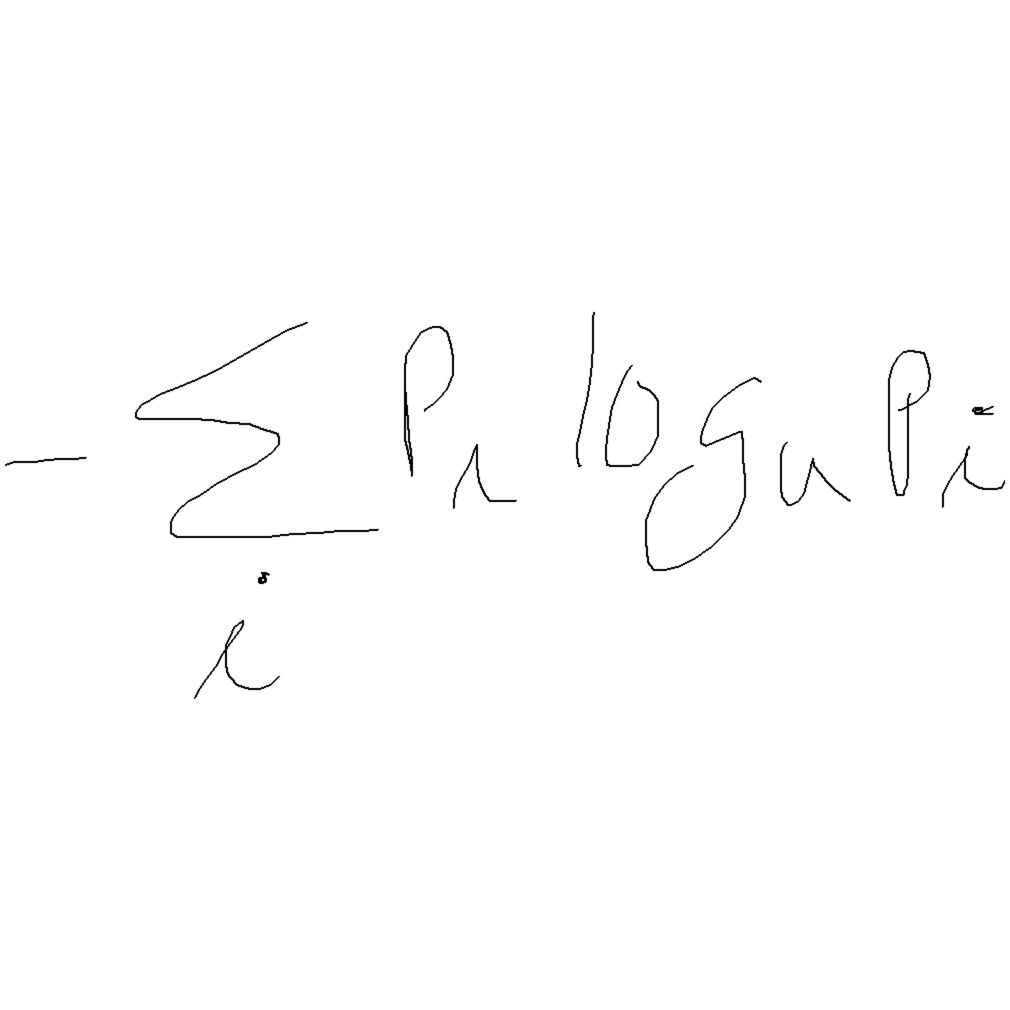 -∑ᵢ Pᵢ logᵤ Pᵢ